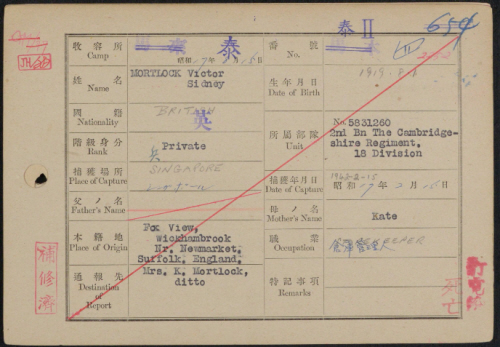 泰 II
收容所
Camp
泰
昭和 17年 月 15日
番號
No.
姓名
Name
MORTLOCK Victor
Sidney
生年月日
Date of Birth
國籍
Nationality
BRITAIN
英
所屬部隊
Unit
No. 5831260
2nd Bn The Cambridge-
shire Regiment,
18 Division
階級身分
Rank
兵 Private
捕獲場所
Place of Capture
SINGAPORE
捕獲年月日
Date of Capture
1942-2-15
昭和 17年 2月 15日
父ノ名
Father's Name
母ノ名
Mother's Name
Kate
本籍地
Place of Origin
Fox View,
Wickhambrook
Nr. Newmarket,
Suffolk, England.
職業
Occupation
KEEPER
通報先
Destination of Report
Mrs. K. Mortlock,
ditto
特記事項
Remarks
補修濟
死亡